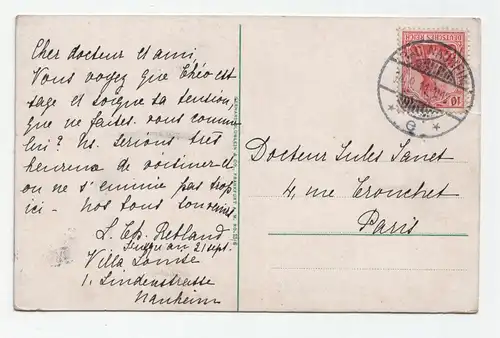 Cher docteur et ami,
Vous voyez que Théo est
sage et soigne sa tension,
que ne faites vous comme
lui? Ns. serions très
heureux de voisiner et
on ne s'ennuie pas trop
ici - nos bons souvenirs
L. Ch. Retland
Jusqu'au 21 sept.
Villa Louise
1, Lindenstrasse
Nauheim
Docteur Jules Janet
4, rue Tronchet
Paris
DEUTSCHES REICH
10
BAD-NAUHEIM
G